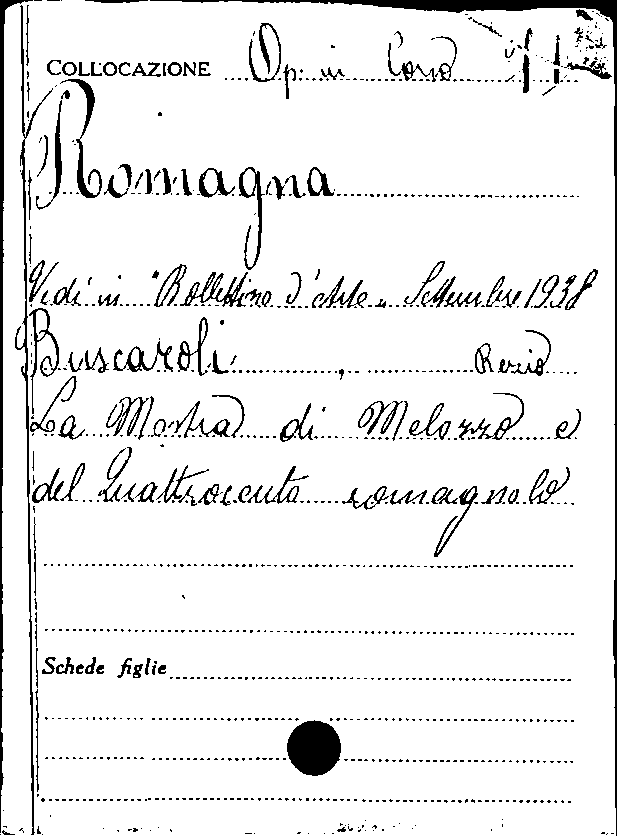 COLLOCAZIONE Op. in Corso
Romagna
Vedi in "Bollettino d'Arte" Settembre 1938
Buscaroli, Rezio
La Mostra di Melozzo e
del Quattrocento romagnolo
Schede figlie